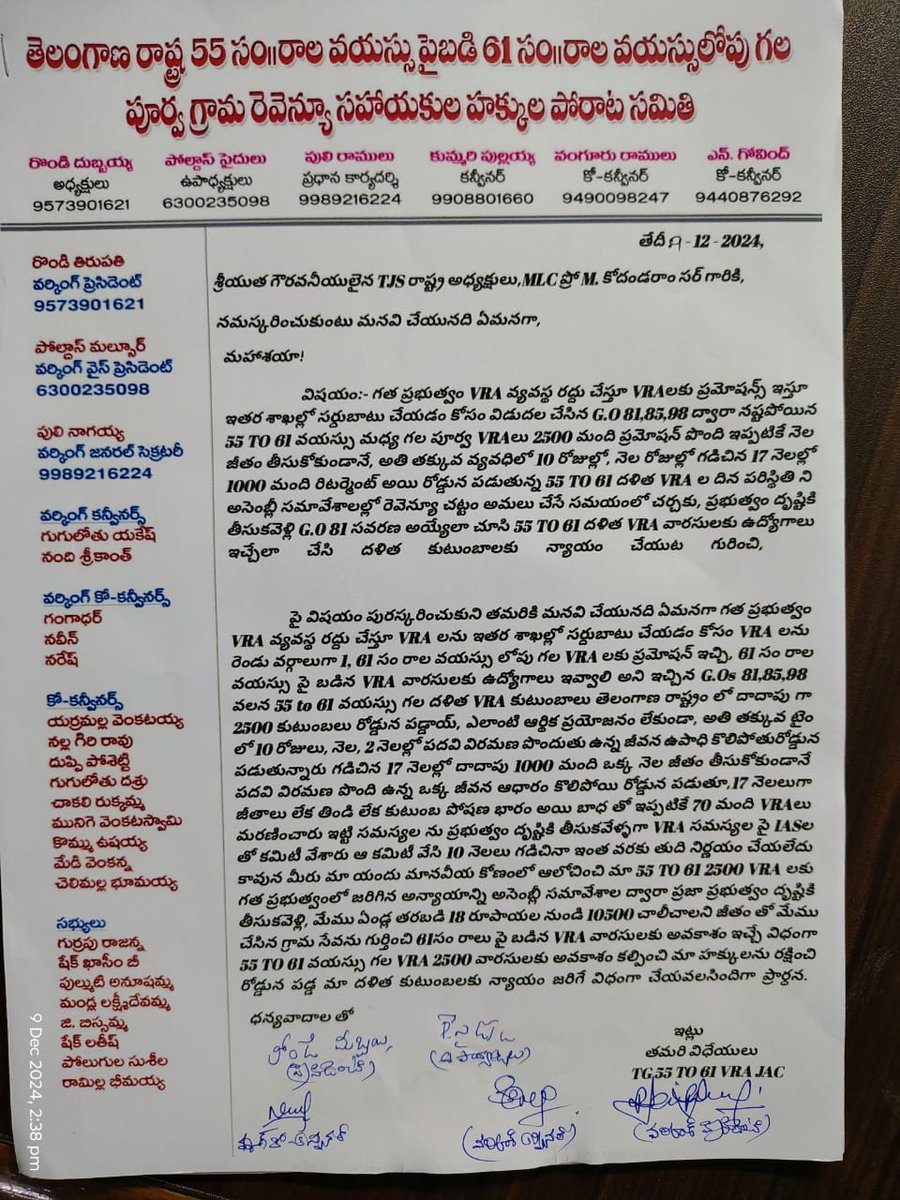 తెలంగాణ రాష్ట్ర 55 సం॥రాల వయస్సు పైబడి 61 సం॥రాల వయస్సులోపు గల
పూర్వ గ్రామ రెవెన్యూ సహాయకుల హక్కుల పోరాట సమితి
రొండి దుబ్బయ్య
అధ్యక్షులు
9573901621
పోల్దాస్ సైదులు
ఉపాధ్యక్షులు
6300235098
పులి రాములు
ప్రధాన కార్యదర్శి
9989216224
కుమ్మరి పుల్లయ్య
కన్వీనర్
9908801660
వంగూరు రాములు
కో-కన్వీనర్
9490098247
ఎన్. గోవింద్
కో-కన్వీనర్
9440876292
రొండి తిరుపతి
వర్కింగ్ ప్రెసిడెంట్
9573901621
పోల్దాస్ మల్సూర్
వర్కింగ్ వైస్ ప్రెసిడెంట్
6300235098
పులి నాగయ్య
వర్కింగ్ జనరల్ సెక్రటరీ
9989216224
వర్కింగ్ కన్వీనర్స్
గుగులోతు యకేష్
నంది శ్రీకాంత్
వర్కింగ్ కో-కన్వీనర్స్
గంగాధర్
నవీన్
నరేష్
కో-కన్వీనర్స్
యర్రమల్ల వెంకటయ్య
నల్ల గిరి రావు
దుప్పి పోశెట్టి
గుగులోతు దశ్రు
చాకలి రుక్కమ్మ
మునిగె వెంకటస్వామి
కొమ్ము ఉషయ్య
మేడి వెంకన్న
చెలిమల్ల భూమయ్య
సభ్యులు
గుర్రపు రాజన్న
షేక్ ఖాసీం బీ
పుల్కుటి అనూషమ్మ
మండ్ల లక్ష్మీదేవమ్మ
జి. బిస్సమ్మ
షేక్ లతీష్
పోలుగుల సుశీల
రామిల్ల భీమయ్య
తేదీ 9-12-2024,
శ్రీయుత గౌరవనీయులైన TJS రాష్ట్ర అధ్యక్షులు,MLC ప్రో M. కోదండరాం సర్ గారికి,
నమస్కరించుకుంటు మనవి చేయునది ఏమనగా,
మహాశయా!
విషయం:- గత ప్రభుత్వం VRA వ్యవస్థ రద్దు చేస్తూ VRAలకు ప్రమోషన్స్ ఇస్తూ
ఇతర శాఖల్లో సర్దుబాటు చేయడం కోసం విడుదల చేసిన G.O 81,85,98 ద్వారా నష్టపోయిన
55 TO 61 వయస్సు మధ్య గల పూర్వ VRAలు 2500 మంది ప్రమోషన్ పొంది ఇప్పటికే నెల
జీతం తీసుకోకుండానే, అతి తక్కువ వ్యవధిలో 10 రోజుల్లో, నెల రోజుల్లో గడిచిన 17 నెలల్లో
1000 మంది రిటర్మెంట్ అయి రోడ్డున పడుతున్న 55 TO 61 దళిత VRA ల దిన పరిస్థితి ని
అసెంబ్లీ సమావేశాలల్లో రెవెన్యూ చట్టం అమలు చేసే సమయంలో చర్చకు, ప్రభుత్వం దృష్టికి
తీసుకవెళ్లి G.O 81 సవరణ అయ్యేలా చూసి 55 TO 61 దళిత VRA వారసులకు ఉద్యోగాలు
ఇచ్చేలా చేసి దళిత కుటుంబాలకు న్యాయం చేయుట గురించి,
పై విషయం పురస్కరించుకుని తమరికి మనవి చేయునది ఏమనగా గత ప్రభుత్వం
VRA వ్యవస్థ రద్దు చేస్తూ VRA లను ఇతర శాఖల్లో సర్దుబాటు చేయడం కోసం VRA లను
రెండు వర్గాలుగా 1, 61 సం రాల వయస్సు లోపు గల VRA లకు ప్రమోషన్ ఇచ్చి, 61 సం రాల
వయస్సు పై బడిన VRA వారసులకు ఉద్యోగాలు ఇవ్వాలి అని ఇచ్చిన G.Os 81,85,98
వలన 55 to 61 వయస్సు గల దళిత VRA కుటుంబాలు తెలంగాణ రాష్ట్రం లో దాదాపు గా
2500 కుటుంబలు రోడ్డున పడ్డాయ్, ఎలాంటి ఆర్థిక ప్రయోజనం లేకుండా, అతి తక్కువ టైం
లో 10 రోజులు, నెల, 2 నెలల్లో పదవి విరమణ పొందుతు ఉన్న జీవన ఉపాధి కొలిపోతురోడ్డున
పడుతున్నారు గడిచిన 17 నెలల్లో దాదాపు 1000 మంది ఒక్క నెల జీతం తీసుకోకుండానే
పదవి విరమణ పొంది ఉన్న ఒక్క జీవన ఆధారం కొలిపోయి రోడ్డున పడుతూ,17 నెలలుగా
జీతాలు లేక తిండి లేక కుటుంబ పోషణ భారం అయి బాధ తో ఇప్పటికే 70 మంది VRAలు
మరణించారు ఇట్టి సమస్యల ను ప్రభుత్వం దృష్టికి తీసుకవేళ్ళగా VRA సమస్యల పై IASల
తో కమిటీ వేశారు ఆ కమిటీ వేసి 10 నెలలు గడిచినా ఇంత వరకు తుది నిర్ణయం చేయలేదు
కావున మీరు మా యందు మానవీయ కోణంలో ఆలోచించి మా 55 TO 61 2500 VRA లకు
గత ప్రభుత్వంలో జరిగిన అన్యాయాన్ని అసెంబ్లీ సమావేశాల ద్వారా ప్రజా ప్రభుత్వం దృష్టికి
తీసుకవెళ్లి, మేము ఏండ్ల తరబడి 18 రూపాయల నుండి 10500 చాలీచాలని జీతం తో మేము
చేసిన గ్రామ సేవను గుర్తించి 61సం రాలు పై బడిన VRA వారసులకు అవకాశం ఇచ్చే విధంగా
55 TO 61 వయస్సు గల VRA 2500 వారసులకు అవకాశం కల్పించి మా హక్కులను రక్షించి
రోడ్డున పడ్డ మా దళిత కుటుంబాలకు న్యాయం జరిగే విధంగా చేయవలసిందిగా ప్రార్థన.
ధన్యవాదాల తో
ఇట్లు
తమరి విధేయులు
TG,55 TO 61 VRA JAC
9 Dec 2024, 2:38 pm